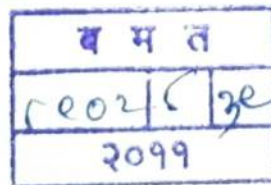 ब म त
८९०२ ८ ३९
२०११